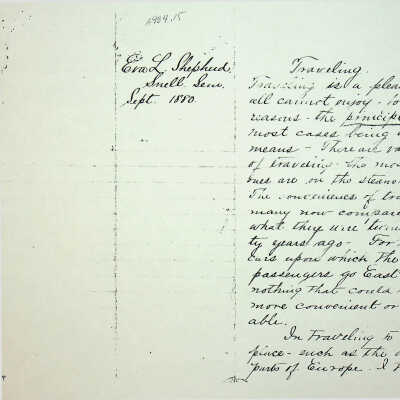 1984.15
Eva L. Shepherd.
Snell Sem.
Sept. 1880.
Traveling.
Traveling is a pleas
all cannot enjoy - fo
reasons - the principle
most cases being
means - There are va
of traveling - the mo
ones are on the steam
The conveniences of tra
many now compare
what they were twen
ty years ago - For
cars upon which the
passengers go East
nothing that could
more convenient or
able.
In traveling to
place - such as the
parts of Europe. I